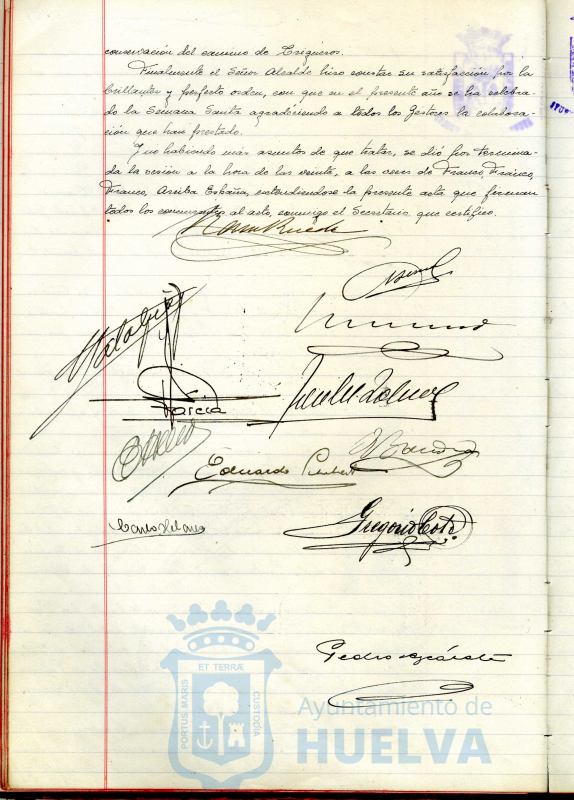 conservación del camino de Trigueros.
Finalmente el Señor Alcalde hizo constar su satisfacción por la
brillantez y perfecto orden, con que en el presente año se ha celebra-
do la Semana Santa agradeciendo a todos los Gestores la colabora-
ción que han prestado.
Y no habiendo más asuntos de que tratar, se dió por termina-
da la sesión a la hora de las veinte, a las voces de Franco, Franco,
Franco, Arriba España, extendiendose la presente acta que firman
todos los concurrentes al acto, conmigo el Secretario que certifico.
García
Eduardo
Gregorio
Pedro
PORTUS MARIS ET TERRÆ CUSTODIA
Ayuntamiento de
HUELVA